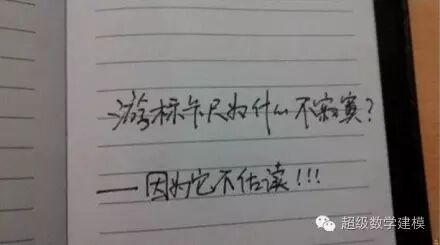 游标卡尺为什么不寂寞?
——因为它不估读!!!
超级数学建模